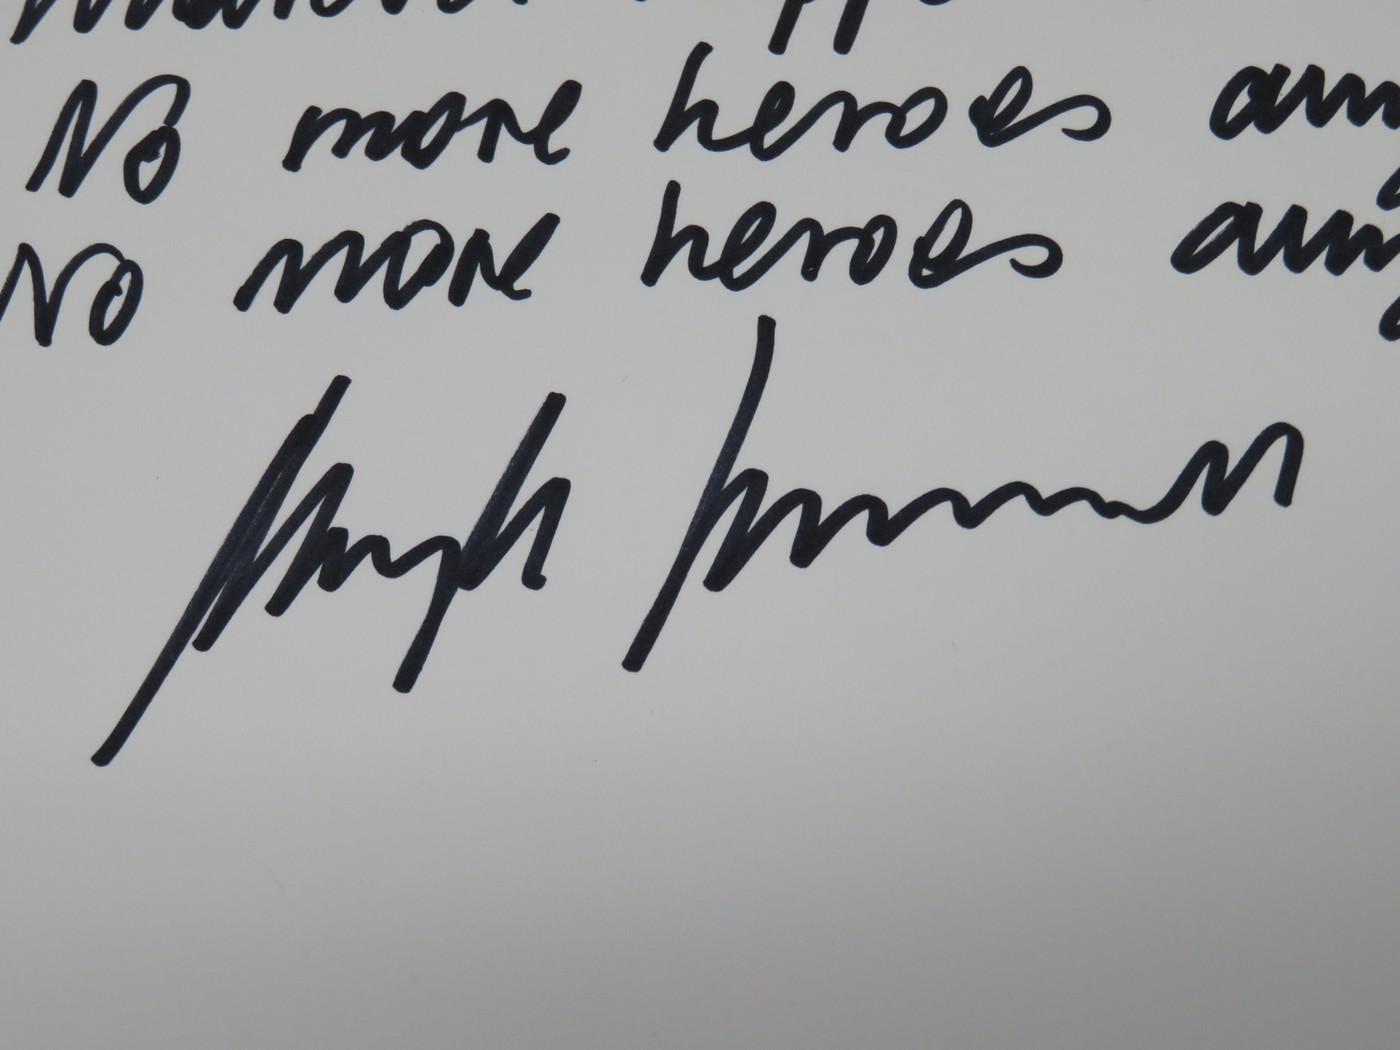 No more heroes any
No more heroes any
Hugh Cornwell